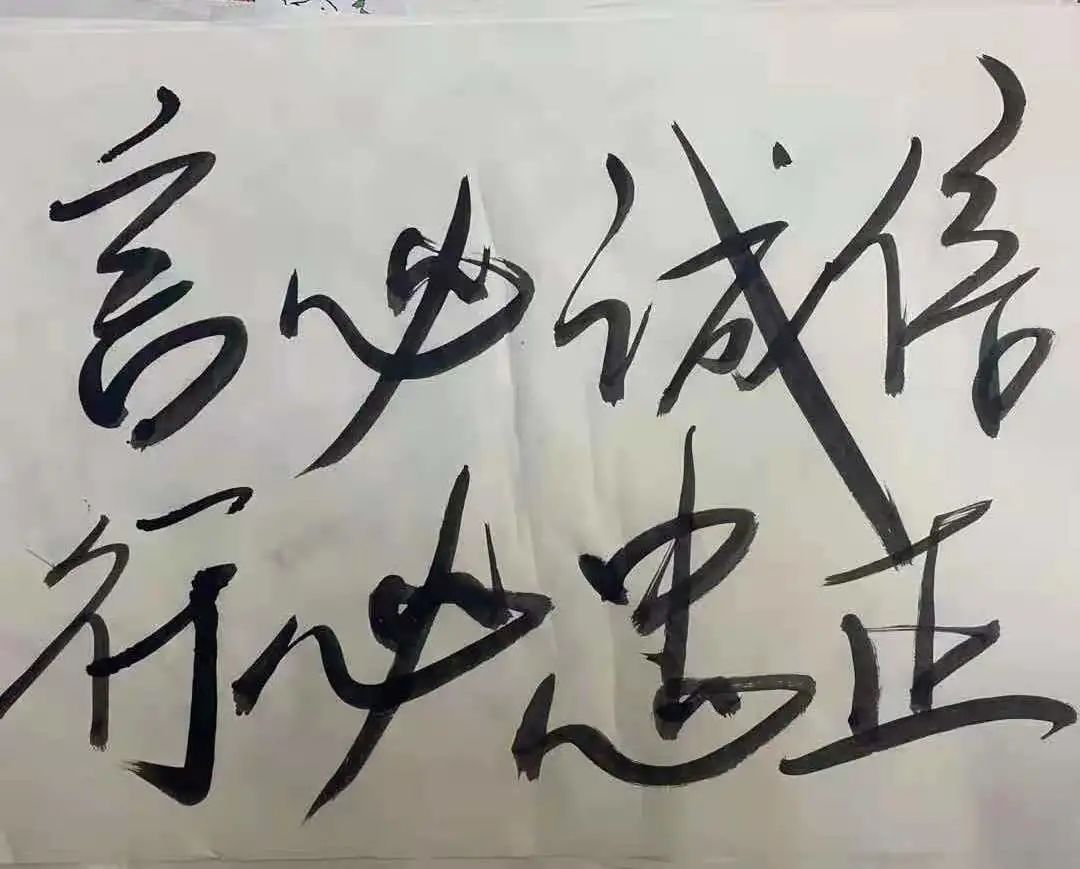 言必诚信
行必忠正